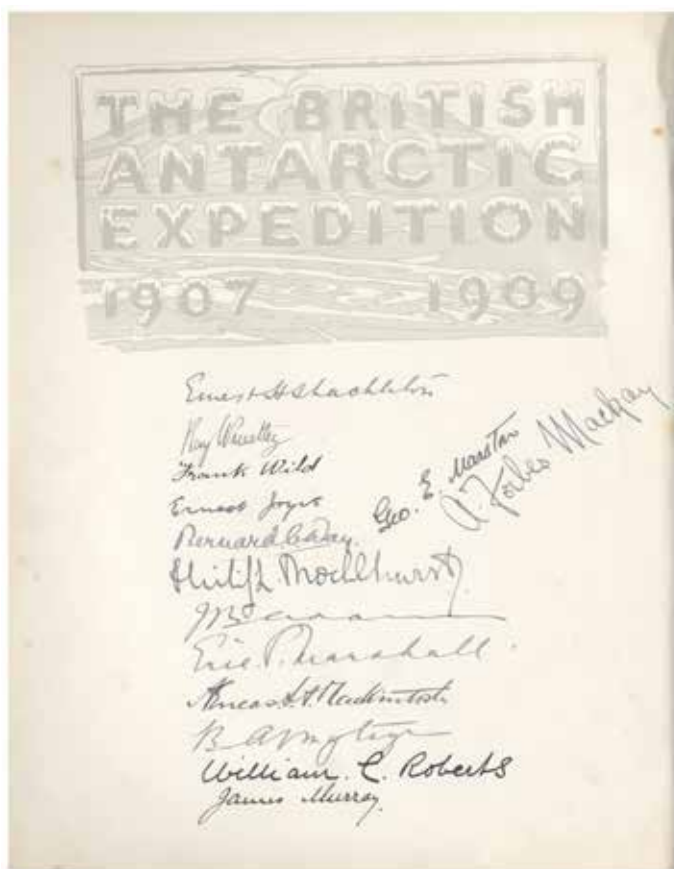 THE BRITISH
ANTARCTIC
EXPEDITION
1907 1909
Ernest H Shackleton
Ray Priestley
Frank Wild
Ernest Joyce
Geo. E. Marston
A. Forbes Mackay
Bernard C Day.
Philip L Brocklehurst
Eric P. Marshall.
Aeneas L. A. Mackintosh
B Armytage
William. C. Roberts
James Murray.